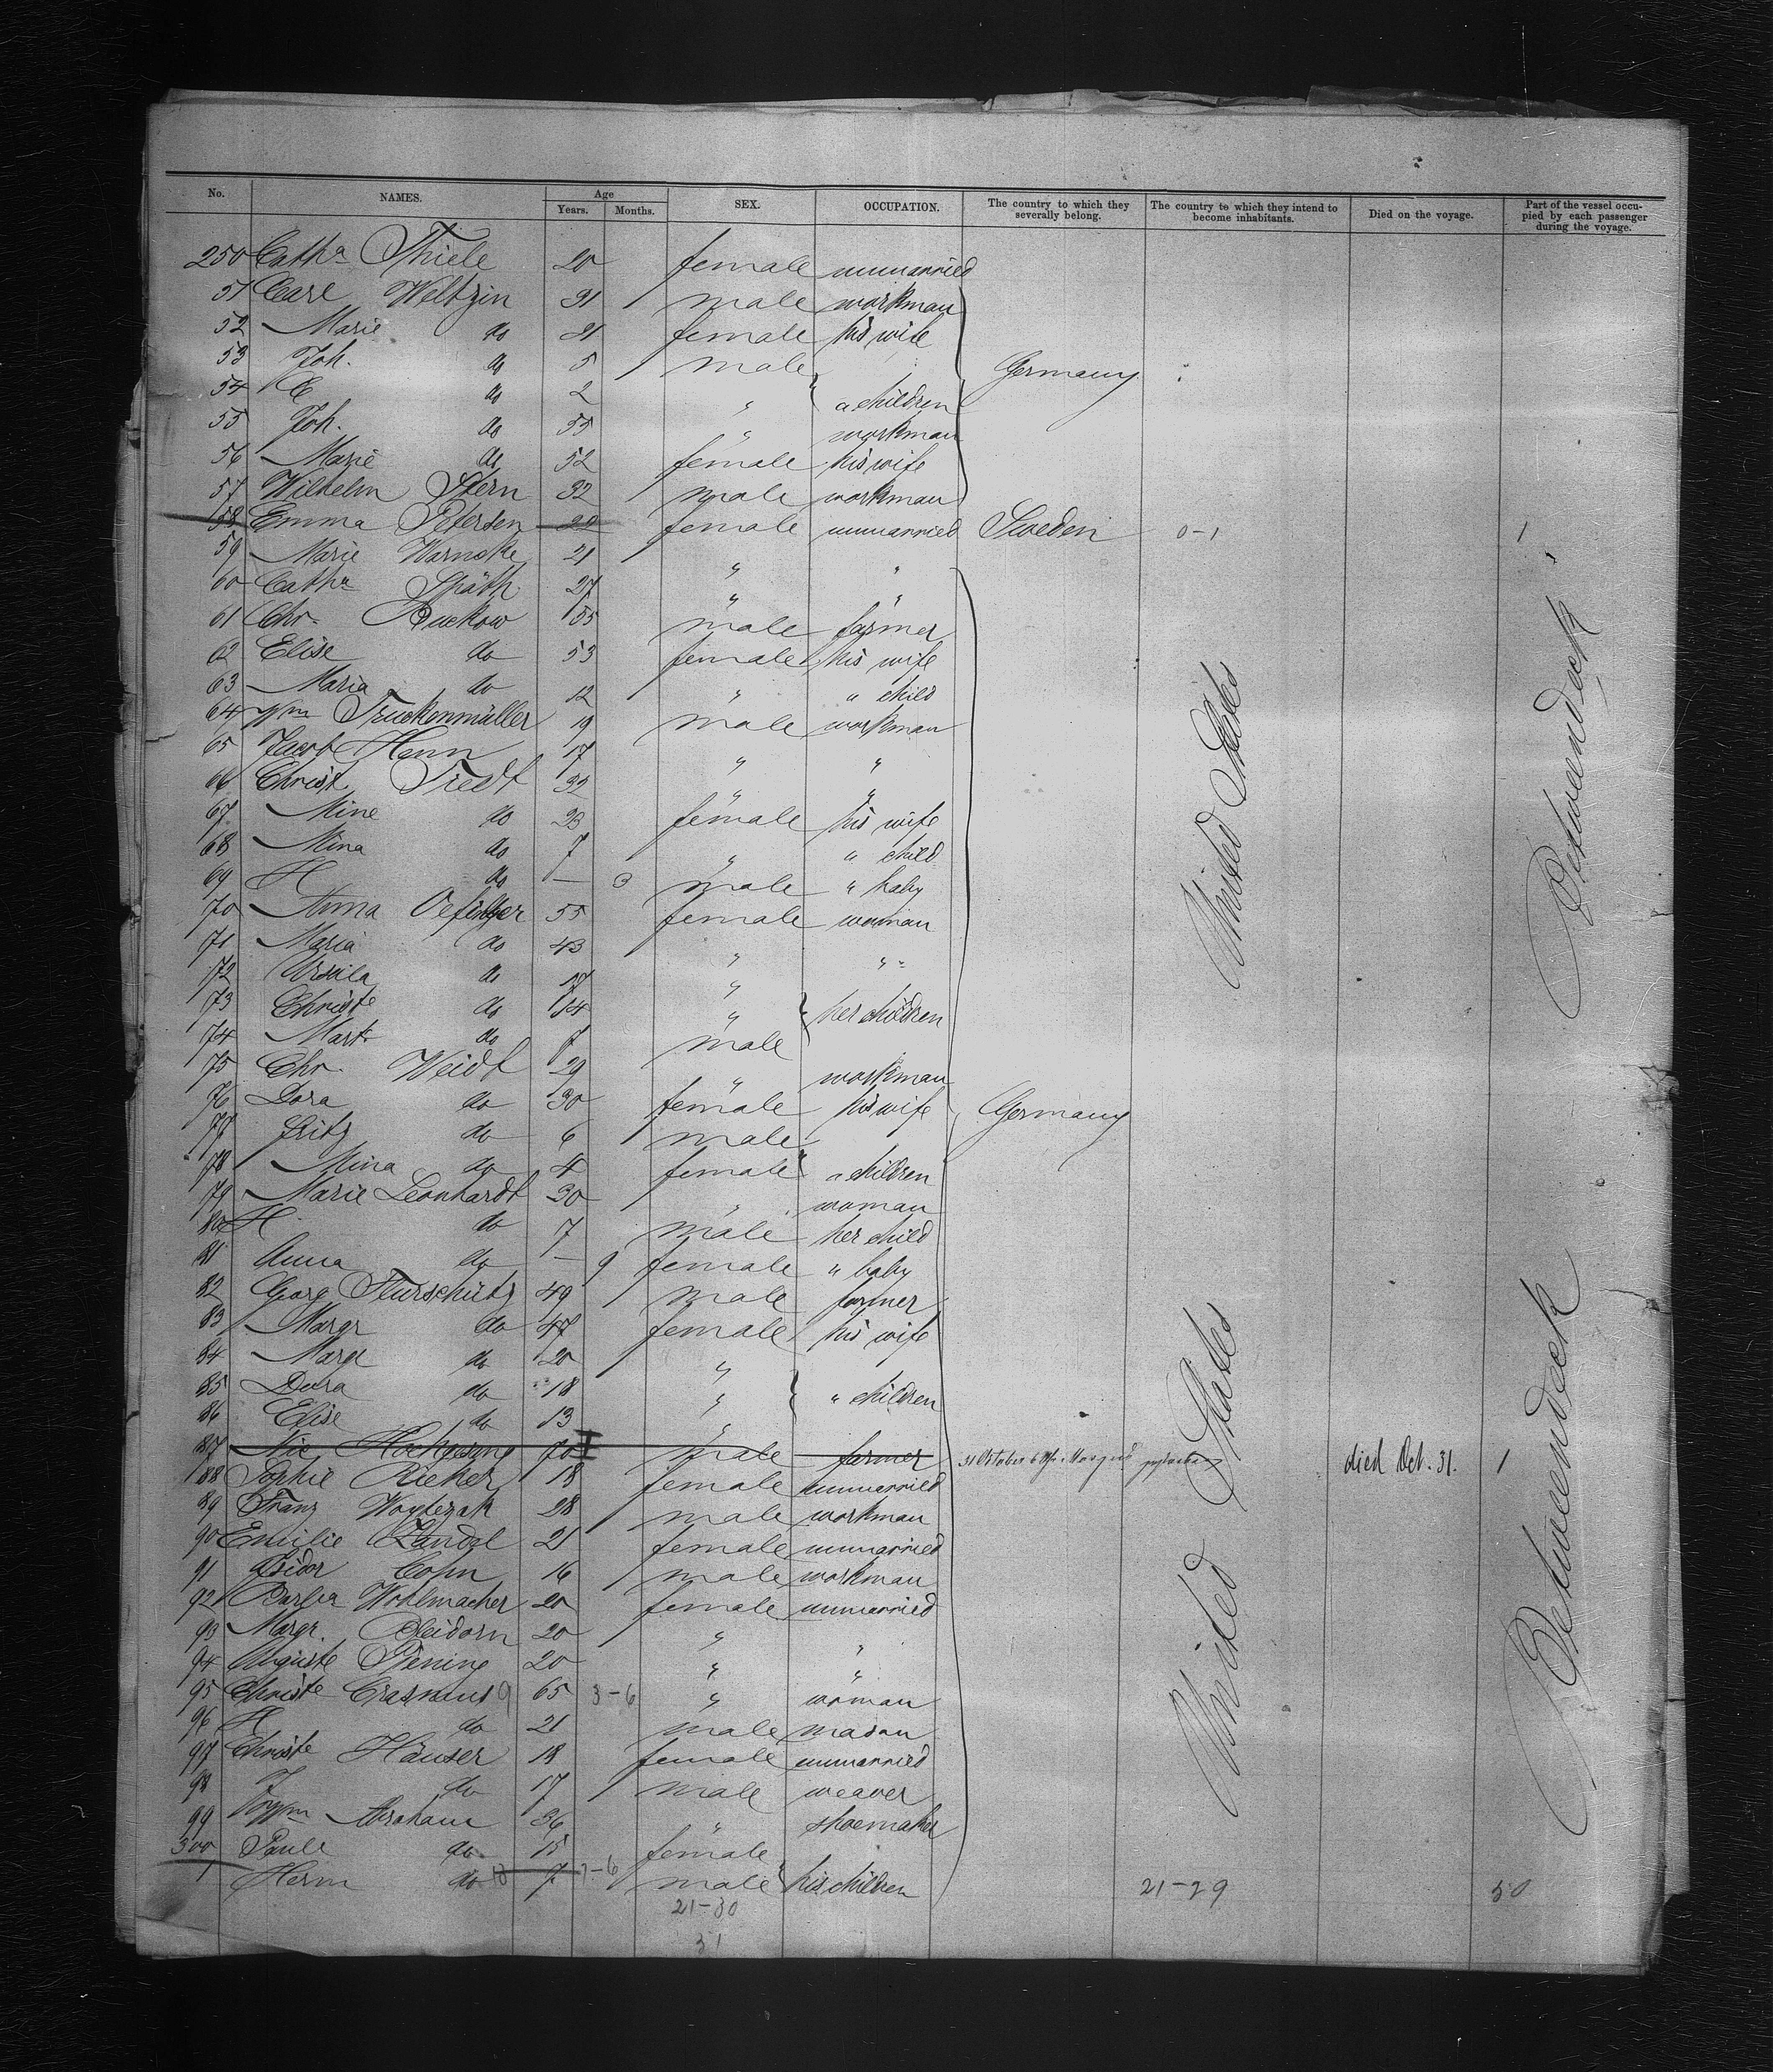 No. NAMES. Age Years. Months. SEX. OCCUPATION. The country to which they severally belong. The country to which they intend to become inhabitants. Died on the voyage. Part of the vessel occupied by each passenger during the voyage.
250 Catha Thiele 20 female unmarried
51 Carl Weltzin 31 male workman
52 Marie do 21 female his wife
53 Joh. do 5 male Germany
54 C do 2 " " children
55 Joh. do 55 " workman
56 Marie do 52 female his wife
57 Wilhelm Stern 32 male workman
58 Emma Petersen 20 female unmarried Sweden 0-1 1
59 Marie Warncke 21 " "
60 Catha Späth 27 " "
61 Chr. Buckow 55 male farmer
62 Elise do 53 female his wife
63 Maria do 12 " " child
64 Truckenmüller 19 male workman
65 Jacob Henn 17 " "
66 Christ. Tiedt 32 " "
67 Mine do 23 female his wife
68 Mina do 7 " " child
69 H do — 3 male " baby
70 Anna 55 female woman
71 Maria do 43 " "
72 Ursula do 17 "
73 Christe do 14 " her children
74 Mart do 7 male
75 Chr. Weidt 29 " workman
76 Dora do 30 female his wife Germany
77 Fritz do 6 male
78 Mina do 4 female " children
79 Marie Leonhardt 30 " woman
80 H. do 7 male her child
81 Anna do — 9 female " baby
82 Georg Flurschütz 49 male farmer
83 Margr do 47 female his wife
84 Margr do 20 "
85 Dora do 18 " " children
86 Elise do 13 "
87 Nic 70 male farmer 31 October died Oct. 31. 1
88 Sophie Rieker 18 female unmarried
89 Franz Woytczak 28 male workman
90 Emilie 21 female unmarried
91 Isidor Cohn 16 male workman
92 Barba Wohlmacher 20 female unmarried
93 Margr. Pleidorn 20 " "
94 Auguste Pening 20 " "
95 Christe Erasmus 65 3-6 " woman
96 H do 21 male mason
97 Christe Häuser 18 female unmarried
98 J do 17 male weaver
99 Abraham 36 " shoemaker
300 Paule do 15 female
1 Herm do 7 male his children
United States
United States
Betweendeck
Betweendeck
21-30
31
21-29
50